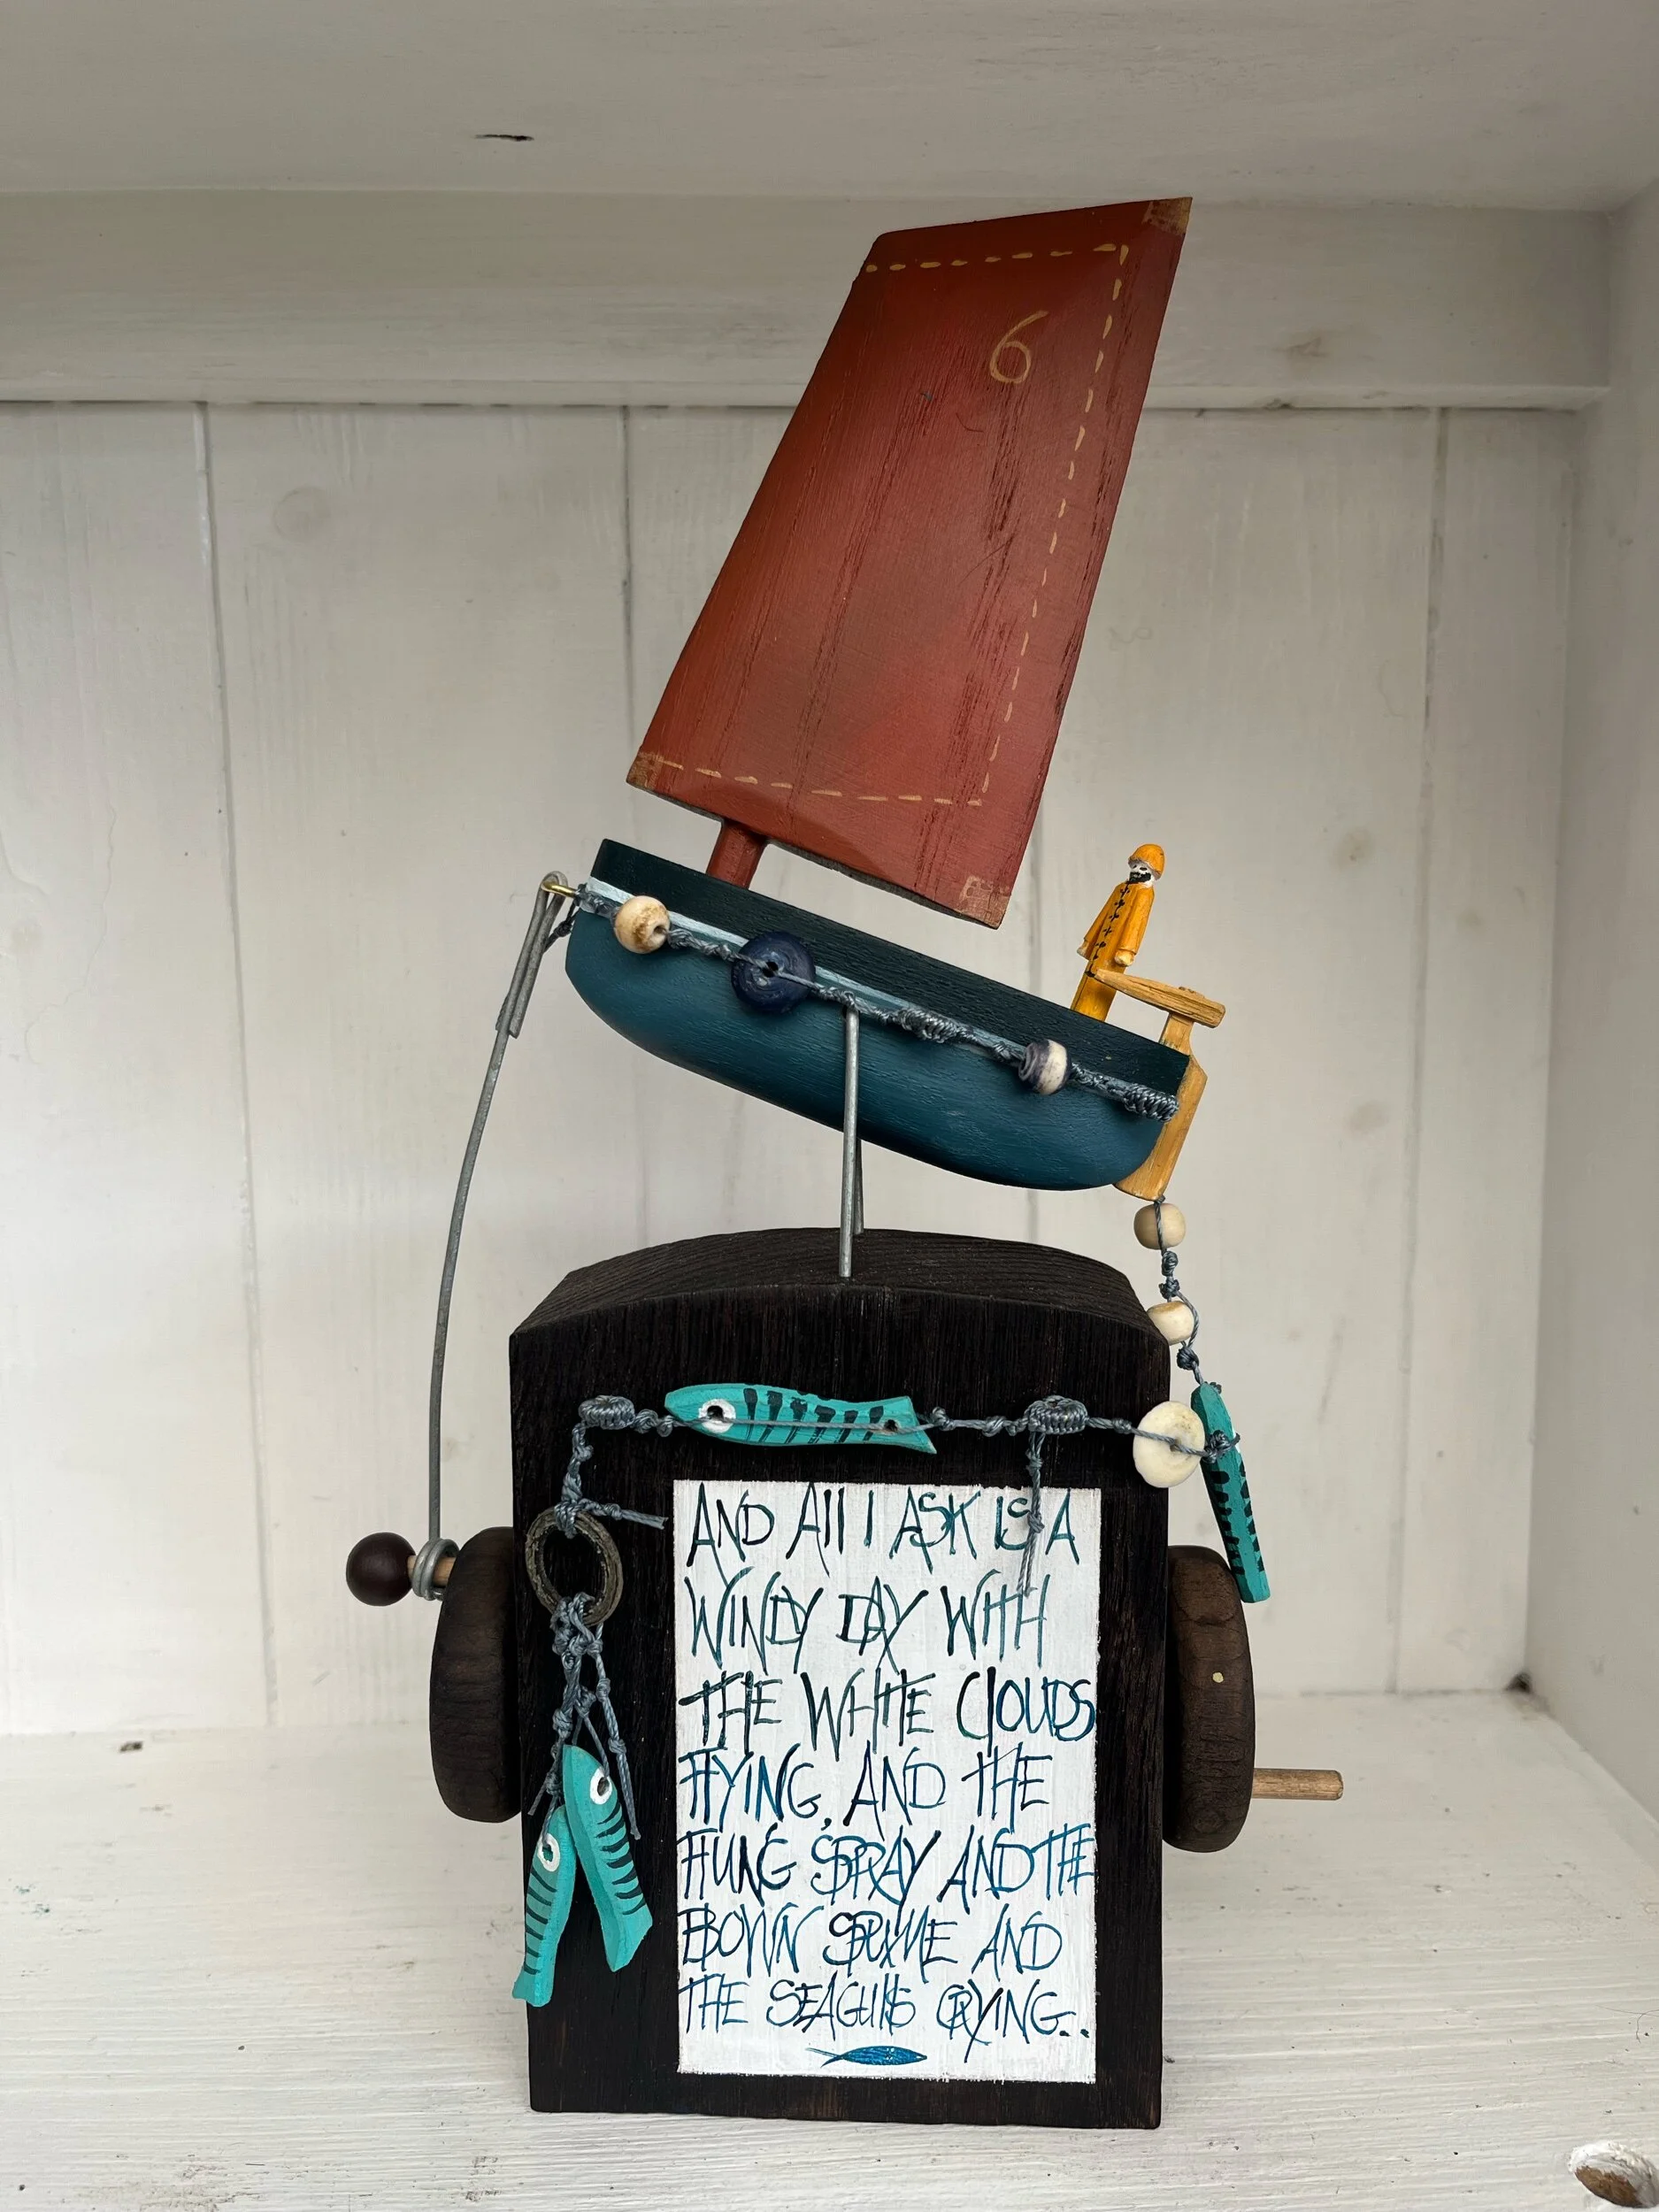 6
AND All I ASK IS A
WINDY DAY WITH
THE WHITE ClOUDS
FlYING, AND THE
FlUNG SPRAY AND THE
BlOWN SPUME AND
THE SEAGUllS CRYING..